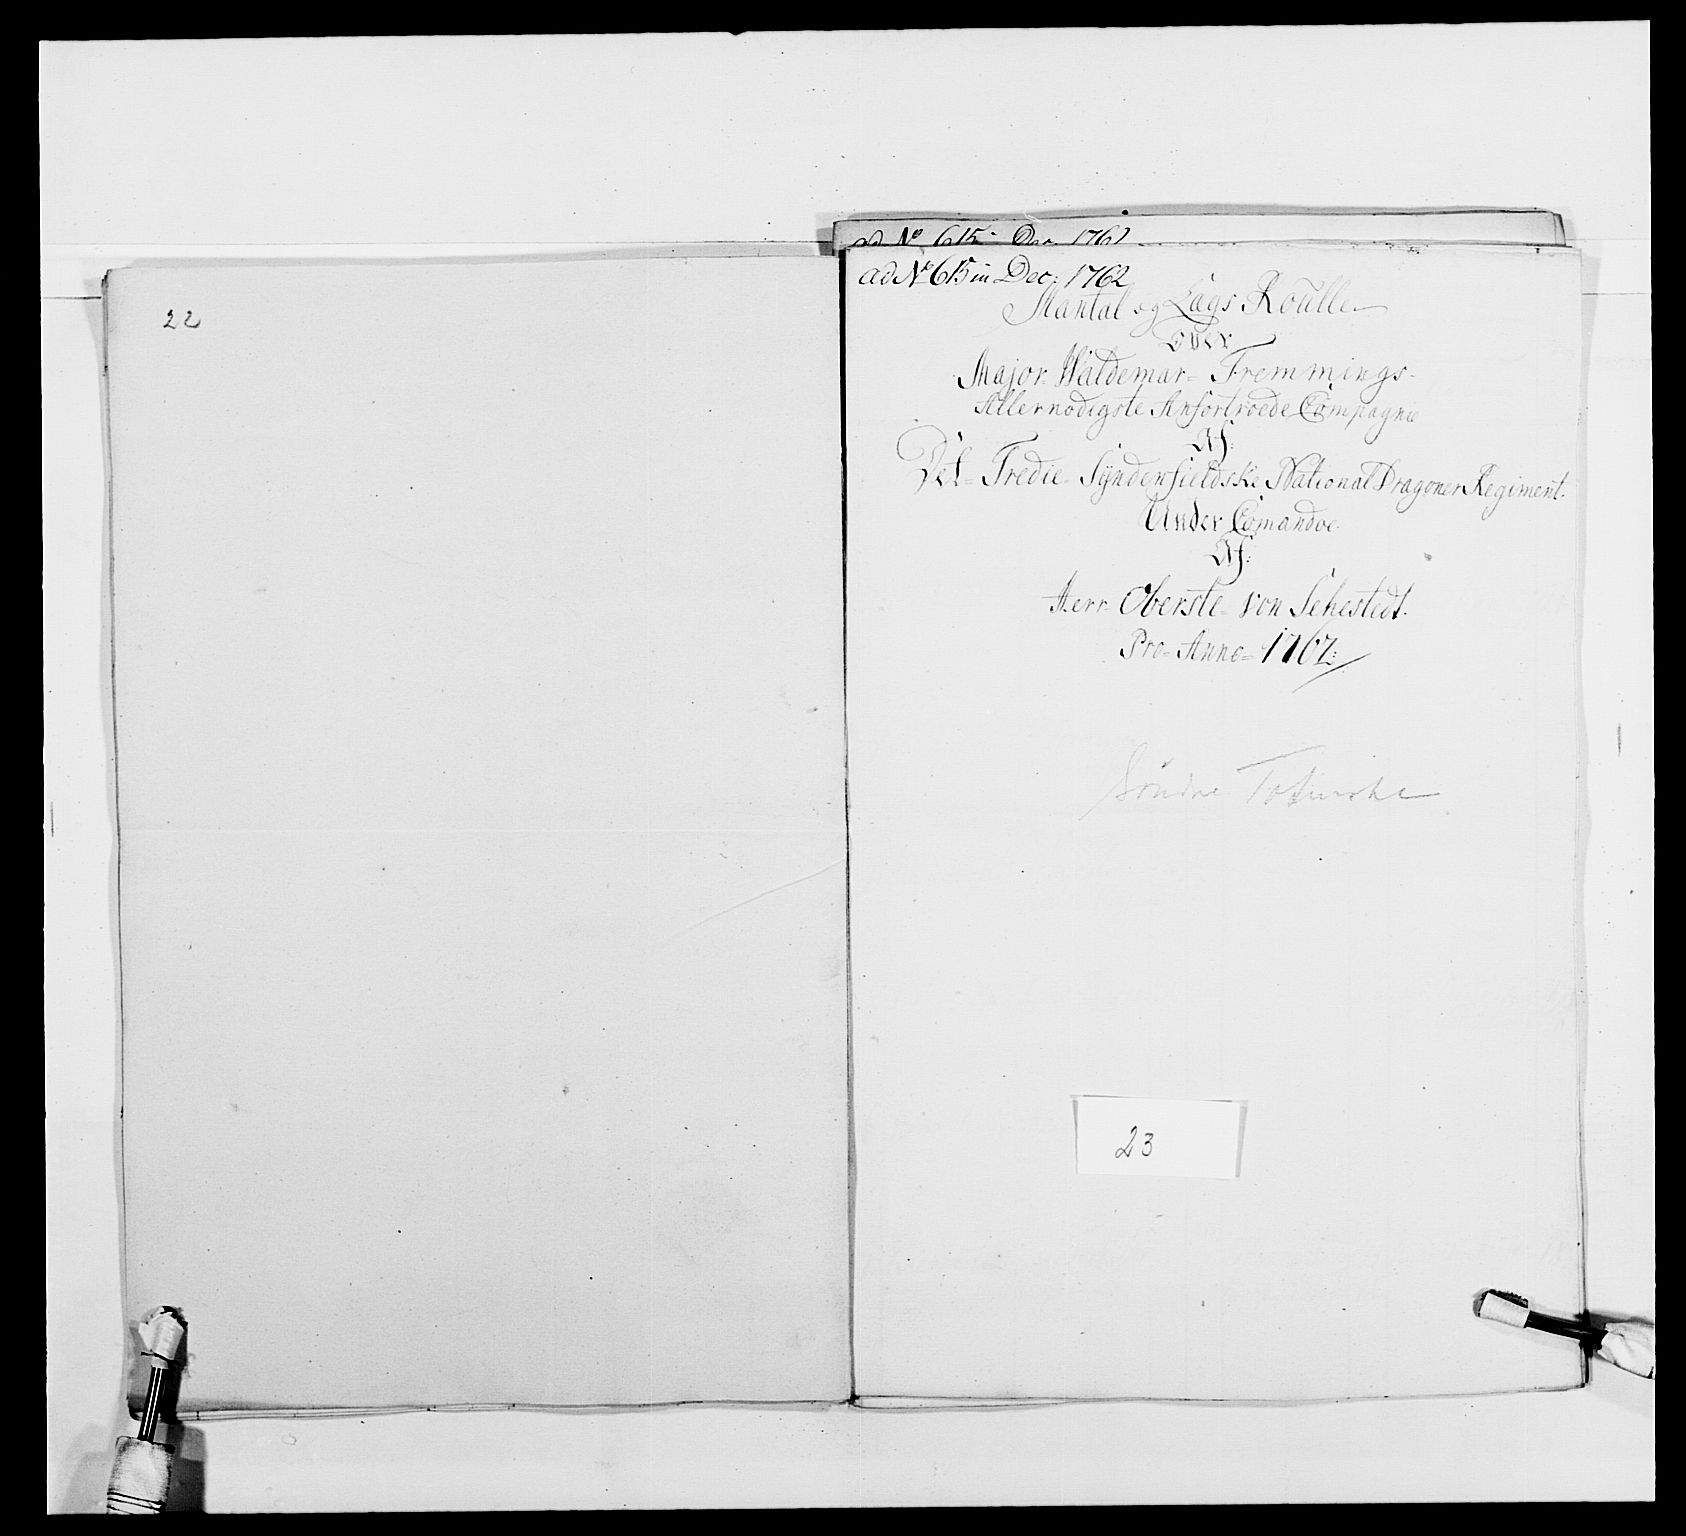 22
ad No 615 Dec. 1762
ad No 615 in Dec: 1762
Mantal og Lags Roulle
over
Major Waldemar Fremmings
Allernodigste Anfortroede Compagnie
Af:
Det Tredie Synderfieldske National Dragoner Regiment.
Under Comandoe
Af:
Herr Oberste von Sehestedt.
Pro Anno 1762:
Søndre Totenske
23